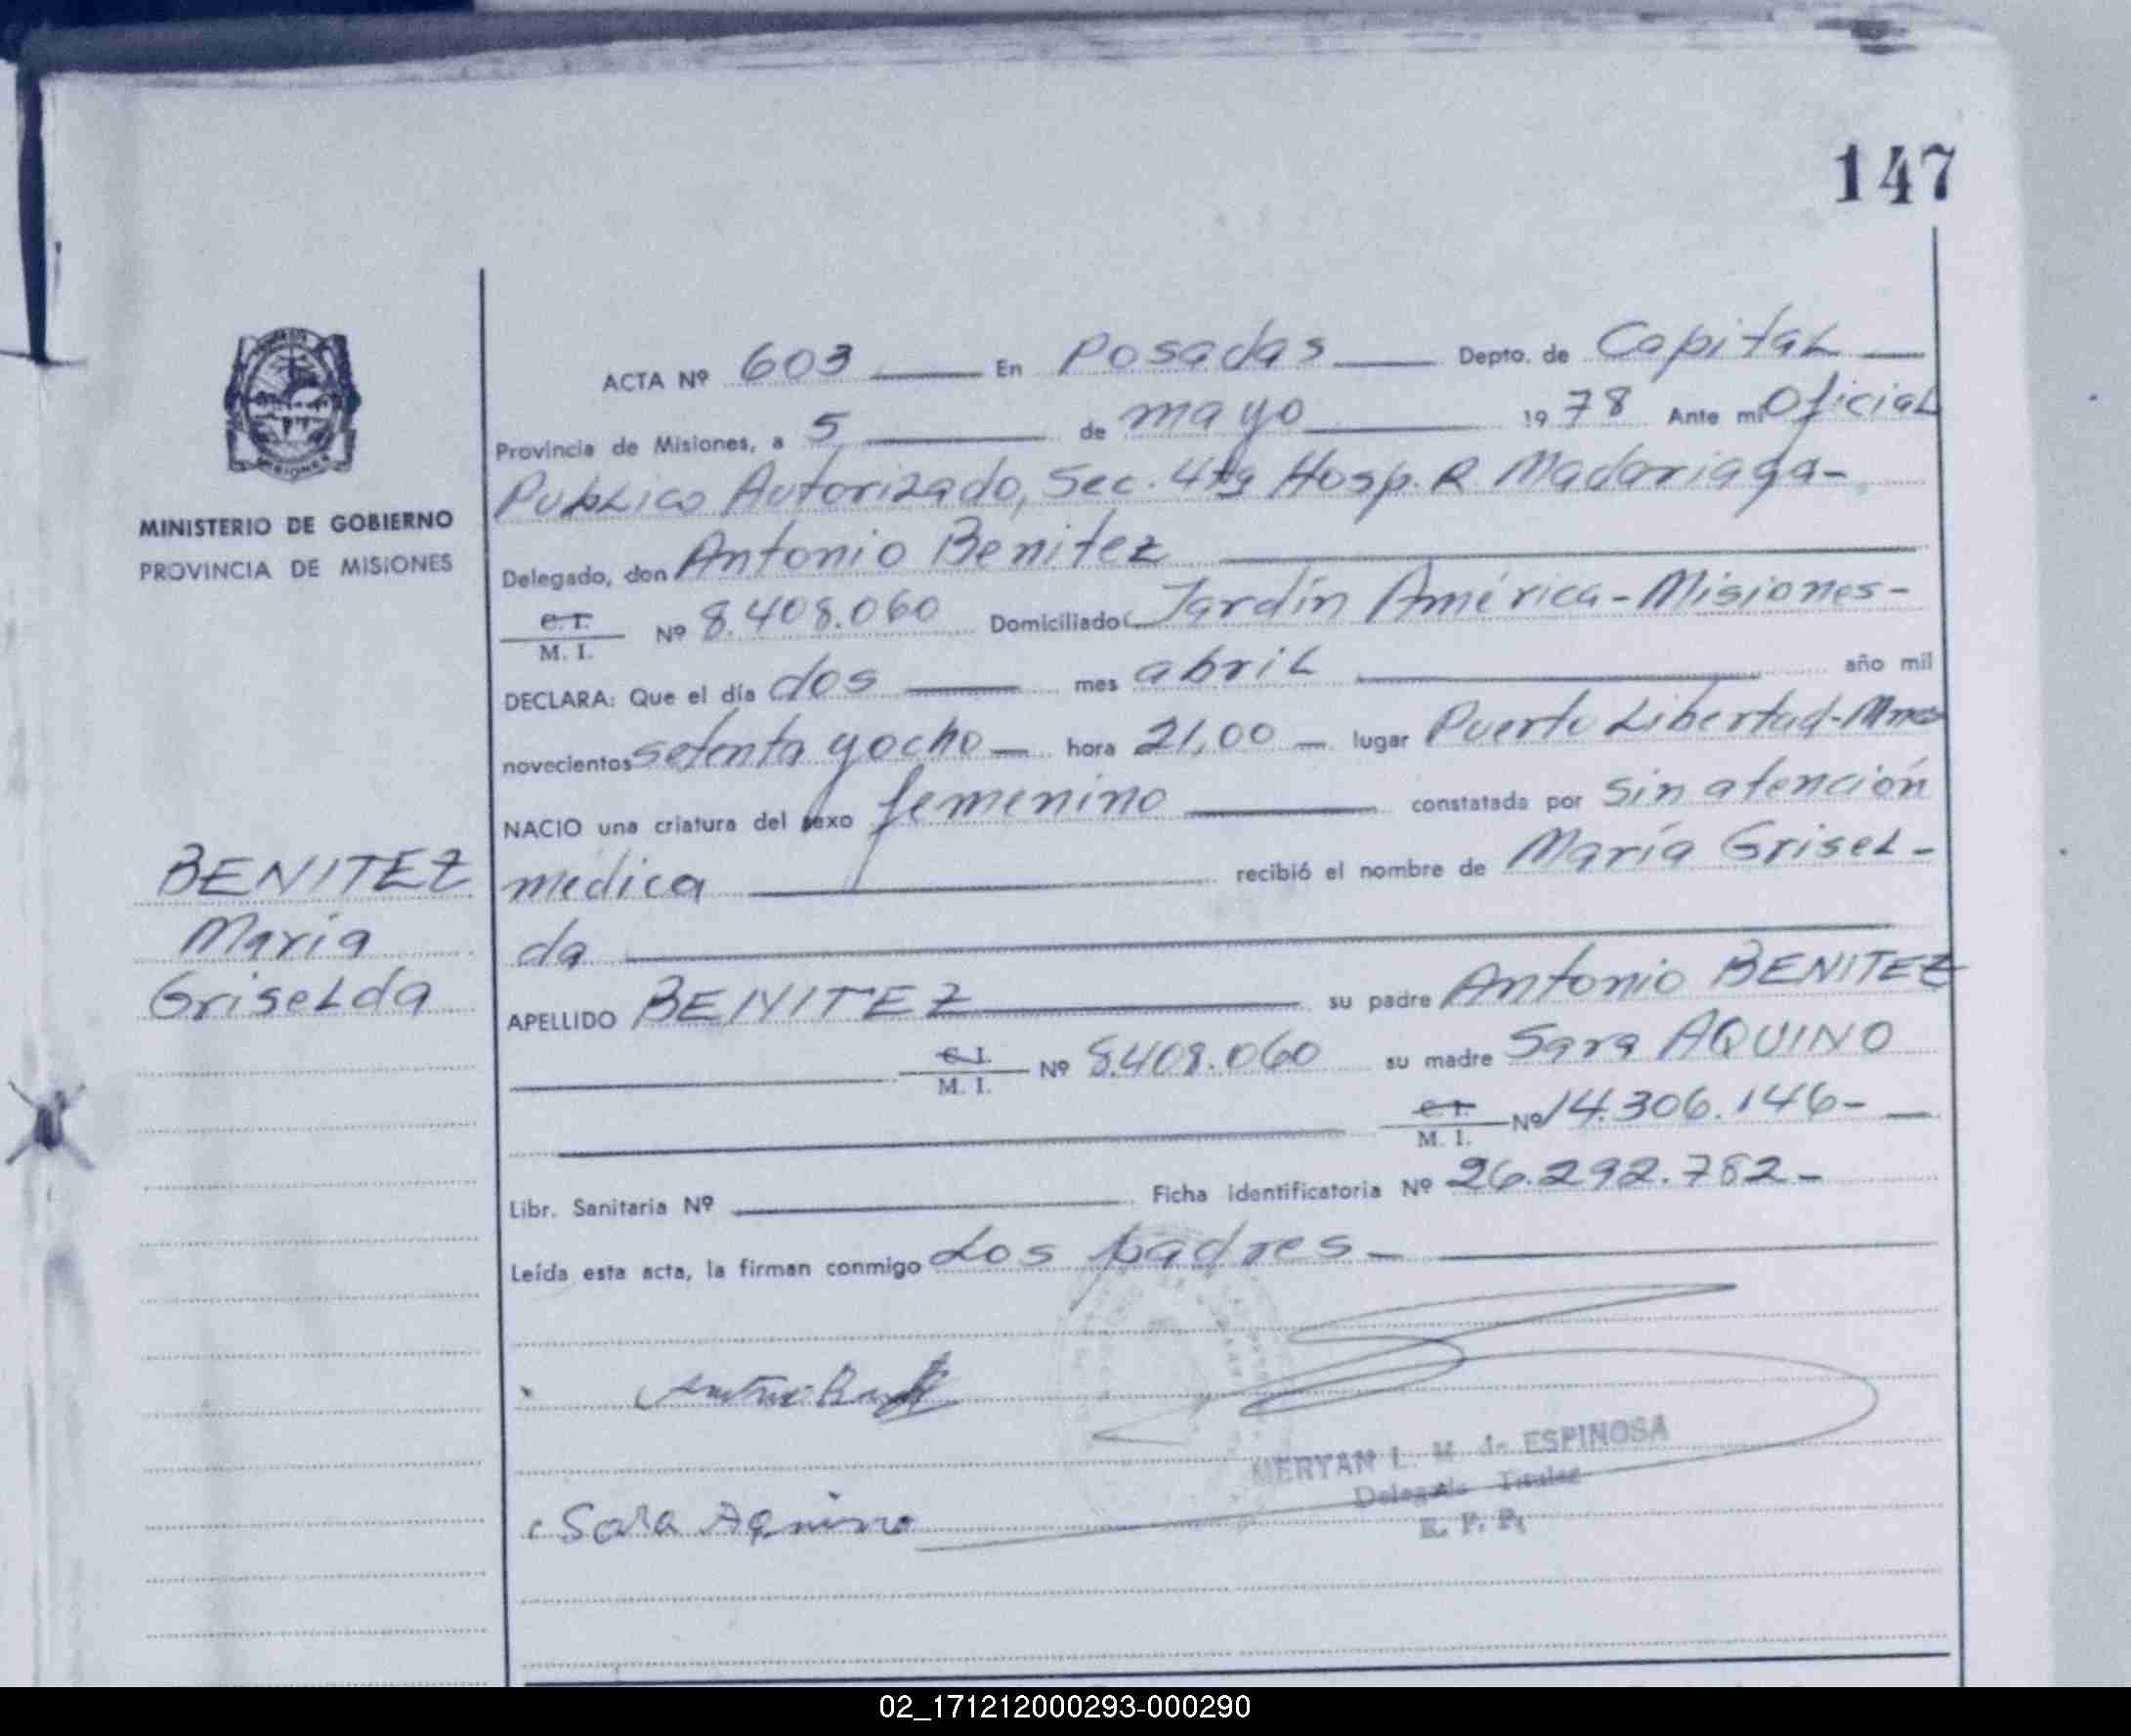 147
ACTA Nº 603 En Posadas Depto. de Capital
Provincia de Misiones, a 5 de mayo 1978 Ante mi Oficial
Publico Autorizado, Sec. 4ta Hosp. R. Madariaga-
Delegado, don Antonio Benitez
C.I. M. I. Nº 8.408.060 Domiciliado Jardín América-Misiones-
DECLARA: Que el día dos mes abril año mil
novecientos setenta y ocho hora 21,00 lugar Puerto Libertad-Mnes
NACIO una criatura del sexo femenino constatada por sin atención
medica recibió el nombre de María Grisel-
da
APELLIDO BENITEZ su padre Antonio BENITEZ
C.I. M. I. Nº 8.408.060 su madre Sara AQUINO
C.I. M. I. Nº 14.306.146-
Libr. Sanitaria Nº Ficha identificatoria Nº 26.292.782-
Leída esta acta, la firman conmigo Los padres-
MISIONES
MINISTERIO DE GOBIERNO
PROVINCIA DE MISIONES
BENITEZ
María
Griselda
Sara Aquino
MERYAN L. M. de ESPINOSA
Delegada Titular
02_171212000293-000290